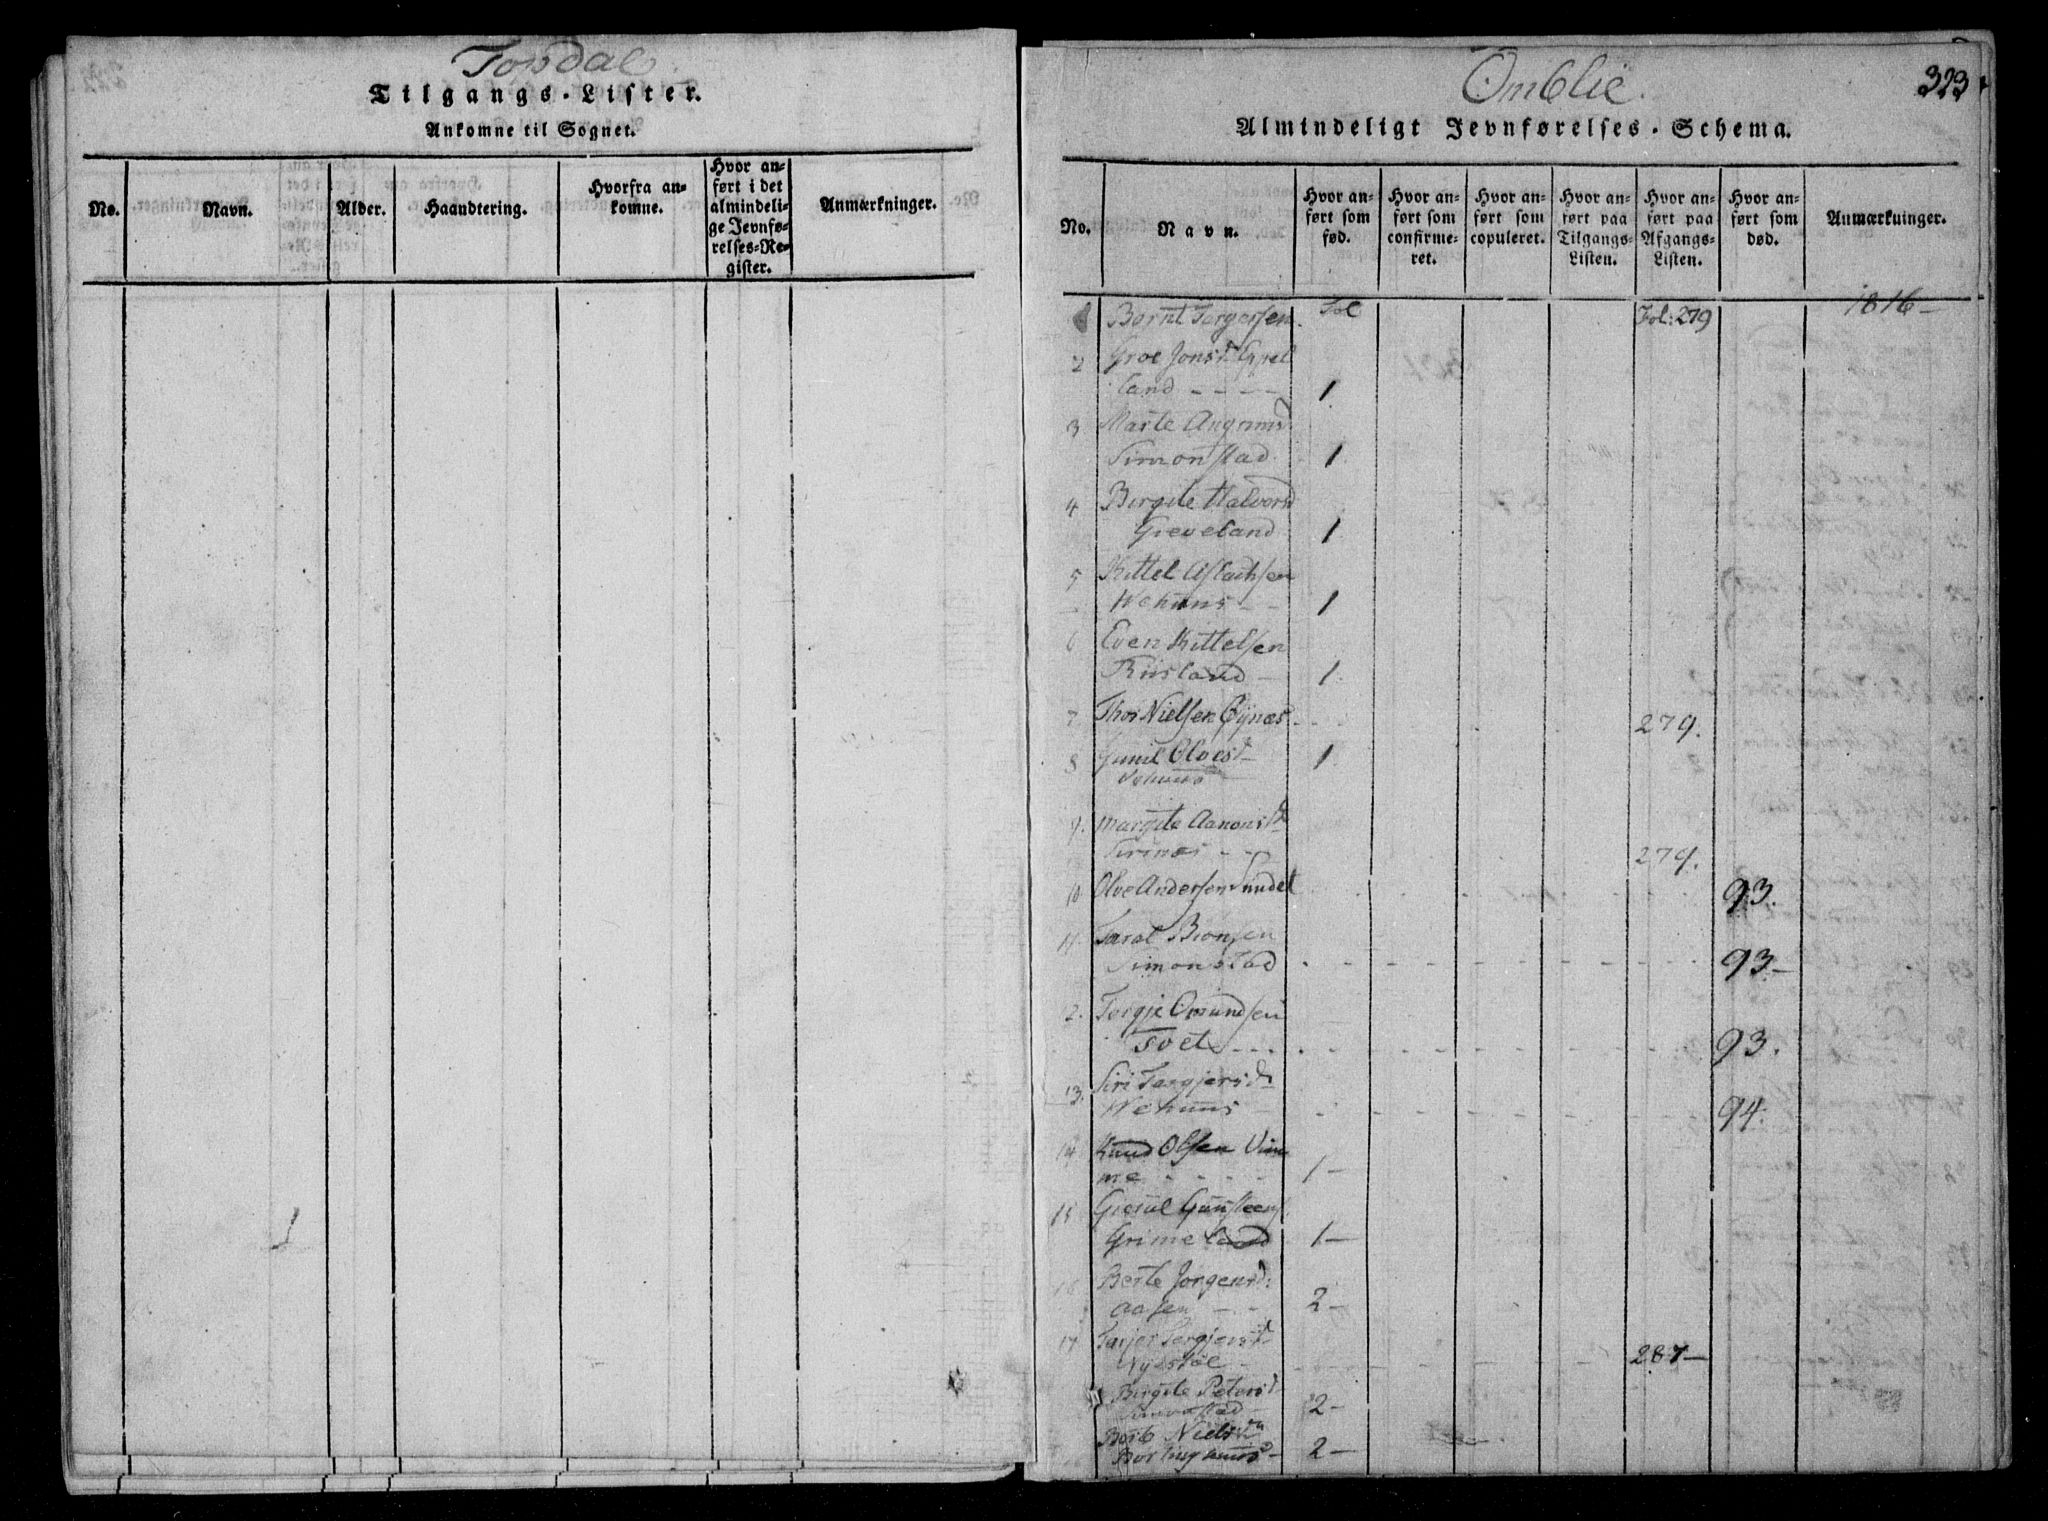 Topdal
Tilgangs-Lister.
Ankomne til Sognet.
No.
Navn.
Alder.
Haandtering.
Hvorfra an-
komne.
Hvor an-
ført i det
almindeli-
ge Jevnfø-
relses-Re-
gister.
Anmærkninger.
Omblie.
323
Almindeligt Jevnførelses-Schema.
No.
Navn.
Hvor an-
ført som
fød.
Hvor an-
ført som
confirme-
ret.
Hvor an-
ført som
copuleret.
Hvor an-
ført paa
Tilgangs-
Listen.
Hvor an-
ført paa
Afgangs-
Listen.
Hvor an-
ført som
død.
Anmærkninger.
Bernt Tergersen. Fol Fol: 279 1816 -
2 Groe Jonsd. Eppel
land - - - - 1.
3 Marte
Simonstad. 1.
4 Birgite Halvorsd
Greveland 1.
5 Kittel Aslachsen
Wehuus - - 1
6 Even Kittelsen
Riisland - 1.
7. Thor Nielsen Øynæs - 279.
8 Gunil Olvesd - 1.
9. Margite Aanonsd
279.
10 Olve Andersen Sundet 93.
11. Taral Bionsen
Simonstad 93 -
2. Tergje Omundsen
Tvet - - - 93.
13. Siri Targjersd
Wehuus 94.
14 Knud Olsen Vim
me - - - - 1 -
15 Gunsteens
Grimeland 1 -
16 Berte Jorgensd:
Aasen - - 2 -
17 Tarjer Tergjers
Nystøl - 287 -
Birgite Petersd
Simonstad 2 -
Borb Nielsd
2 -